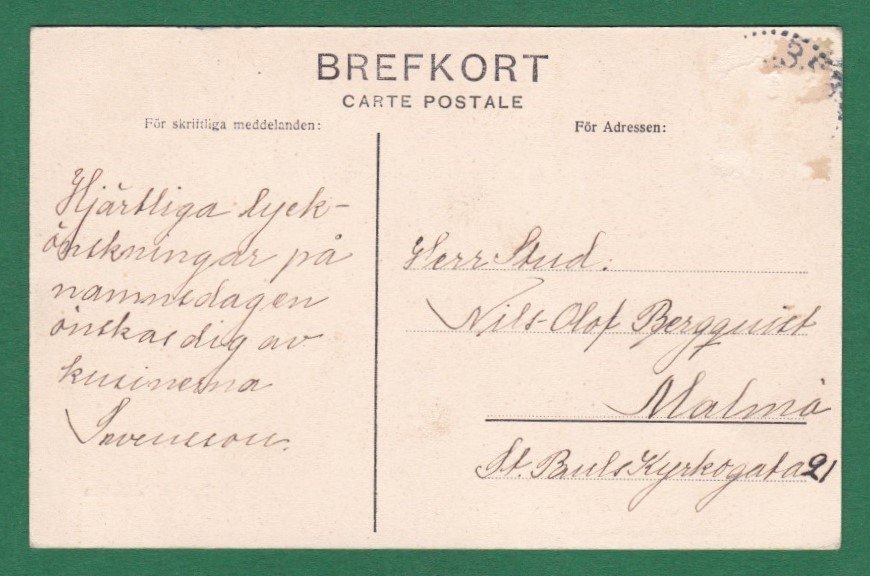 BREFKORT
CARTE POSTALE
För skriftliga meddelanden:
För Adressen:
Hjärtliga lyck-
önskningar på
namnsdagen
önskas dig av
kusinerna
Svensson.
Herr Stud.
Nils-Olof Bergquist
Malmö
St. Pauls Kyrkogata 21